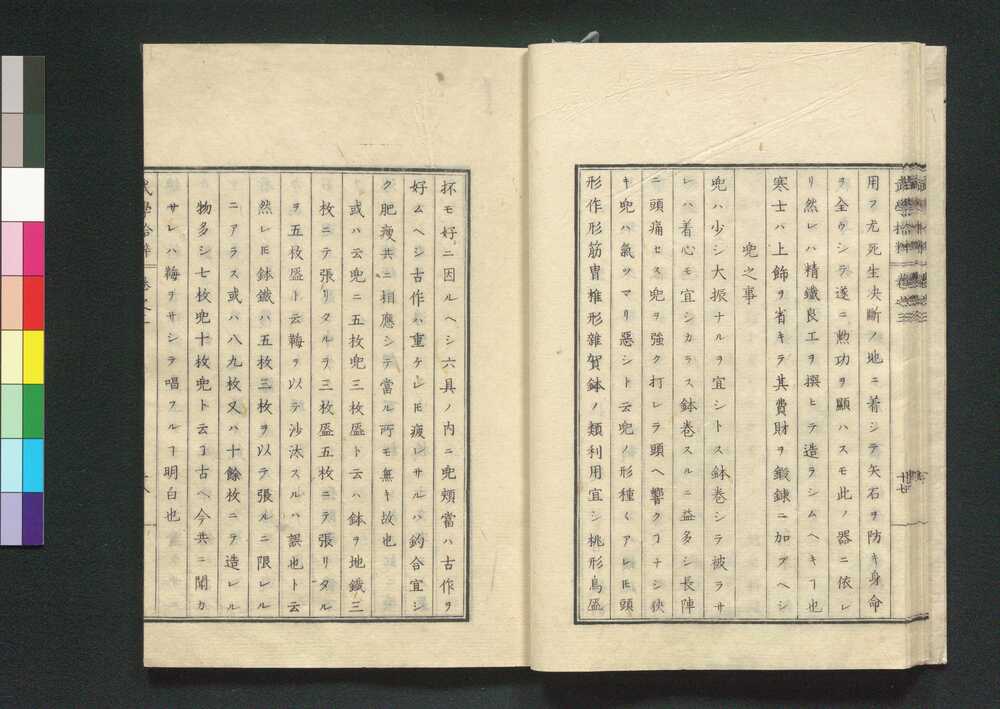 用フ尤死生決斷ノ地ニ着シテ矢石ヲ防キ身命
ヲ全ウシテ遂ニ勲功ヲ顯ハスモ此ノ器ニ依レ
リ然レハ精鐵良工ヲ撰ヒテ造ラシムヘキヿ也
寒士ハ上飾ヲ省キテ其費財ヲ鍛錬ニ加フヘシ
兜之事
兜ハ少シ大振ナルヲ宜シトス鉢巻シテ被ラサ
レハ着心モ宜シカラス鉢巻スルニ益多シ長陣
ニ頭痛セス兜ヲ強ク打レテ頭ヘ響クヿナシ狹
キ兜ハ氣ツマリ惡シト云兜ノ形種〱アレ𪜈頭
形作形筋冑椎形雜賀鉢ノ類利用宜シ桃形烏盔
抔モ好ニ因ルヘシ六具ノ内ニ兜頬當ハ古作ヲ
好ムヘシ古作ハ重ケレ𪜈疲レサルハ釣合宜シ
ク肥瘦共ニ相應シテ當ル所モ無キ故也
或ハ云兜ニ五枚兜三枚盔ト云ハ鉢ヲ地鐵三
枚ニテ張リタルヲ三枚盔五枚ニテ張リタル
ヲ五枚盔ト云鞠ヲ以テ沙汰スルハ誤也ト云
然レ𪜈鉢鐵ハ五枚三枚ヲ以テ張ルニ限レル
ニアラス或ハ八九枚又ハ十餘枚ニテ造レル
物多シ七枚兜十枚兜ト云ヿ古ヘ今共ニ聞カ
サレハ鞠ヲサシテ唱フルヿ明白也